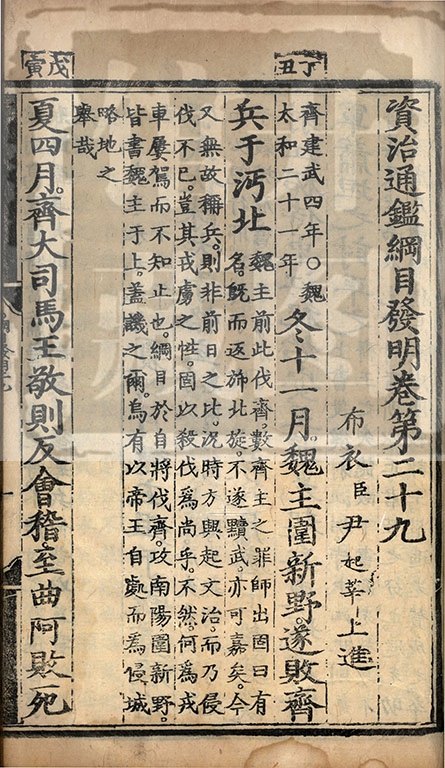 丁丑
戊寅
資治通鑑綱目發明卷第二十九
布衣臣尹起莘上進
齊建武四年○魏
太和二十一年
冬十一月。魏主圍新野。遂敗齊
兵于沔北
魏主前此伐齊。數齊主之罪。師出固曰有
名。既而返斾北旋。不遂黷武。亦可嘉矣。今
又無故稱兵。則非前日之比。況時方興起文治。而乃侵
伐不已。豈其戎虜之性。固以殺伐爲尚乎。不然。何爲戎
車屢駕而不知止也。綱目於自將伐齊。攻南陽圍新野。
皆書魏主于上。蓋譏之爾。烏有以帝王自處而爲侵城
略地之
舉哉
夏四月。齊大司馬王敬則反會稽。至曲阿敗死